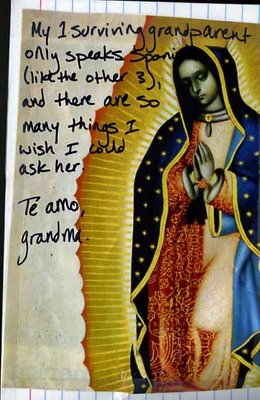 My 1 surviving grandparent
only speaks Spani
(like the other 3),
and there are so
many things I
wish I could
ask her.
Te amo,
grandma.